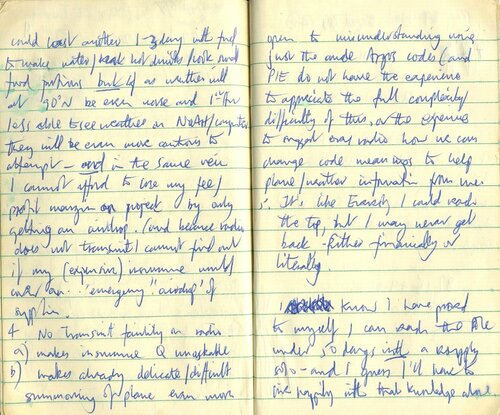 could last another 1-3 days with fuel
to make water/ hot drinks/
food portions but if as weather will
at 90°N be even worse and
less able to see weather on /computer
they will be even more cautious to
attempt - and in the same vein
I cannot afford to lose my fee/
profit margin on project by only
getting an airdrop. (and because radio
does not transmit I cannot find out
if my (expensive) insurance would
cover an 'emergency "airdrop" of
supplies.
4 No Transmit facility on radio
a) makes insurance Q unaskable
b) makes already delicate/difficult
summoning of plane even more
open to misunderstanding using
just the Argos codes (and
PIE do not have the experience
to appreciate the full complexity/
difficulty of this, or the experience
to suggest over radio how we can
change code meanings to help
plane/weather information from me.
5. It's like Everest, I could reach
the top, but I may never get
back - Either financially or
literally.
I know I have proved
to myself I can reach the Pole
under 50 days with a resupply
- and I guess I'll have to
live happily with that knowledge alone